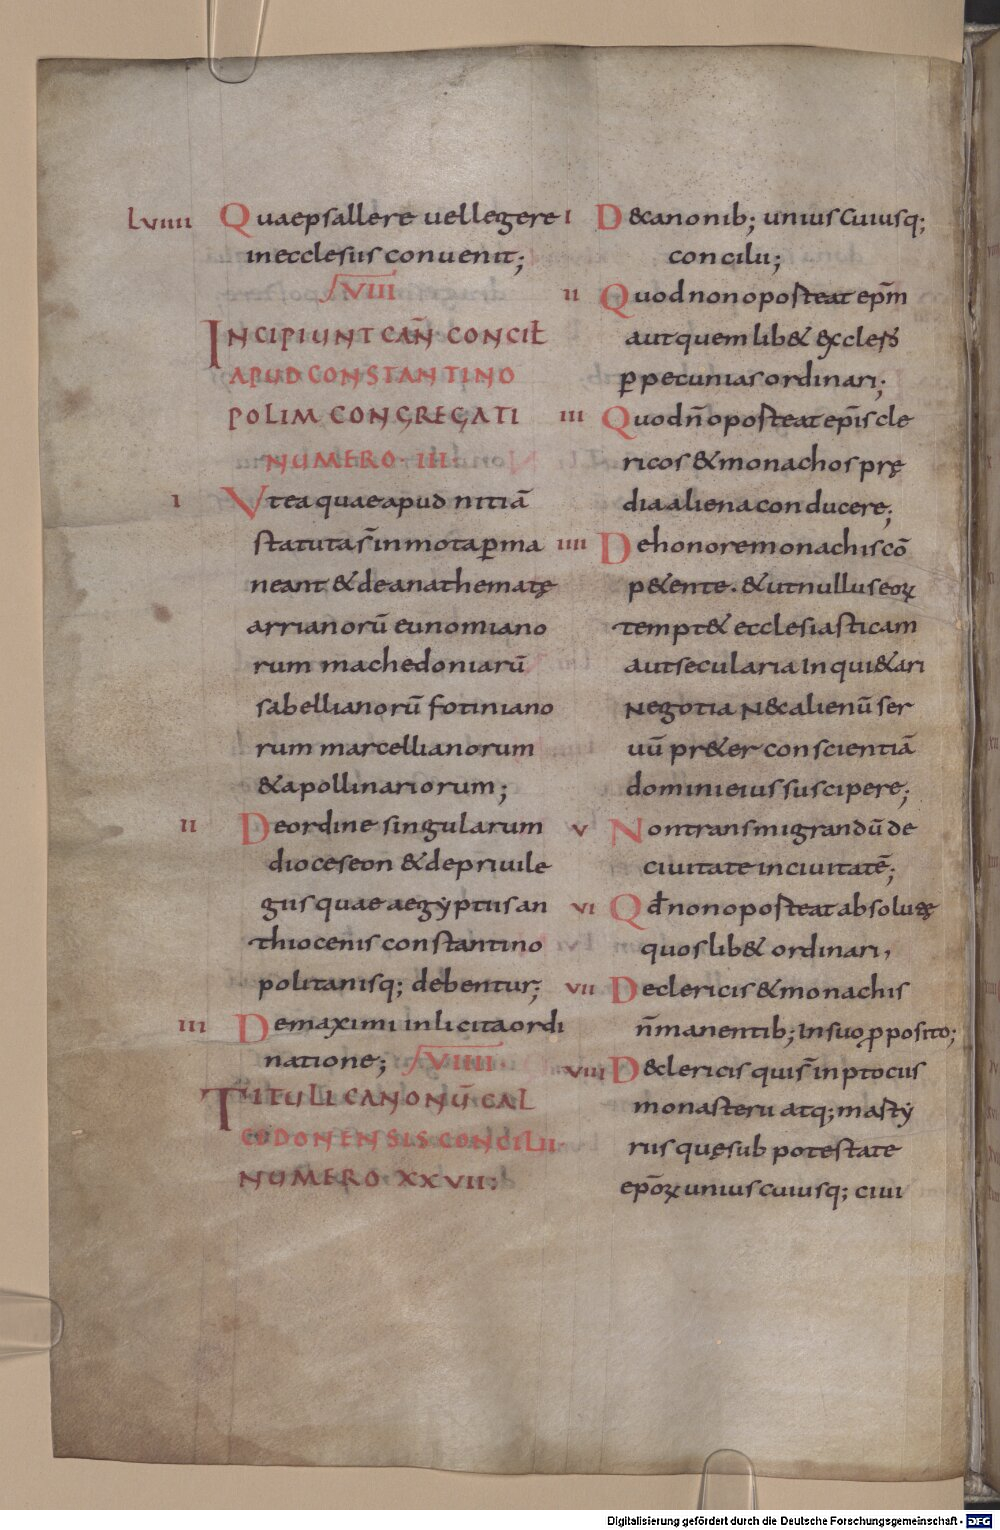 LVIIII Quaepsallere uellegere
inecclesiis conuenit;
VIII
INCIPIUNT CAÑ CONCIL̄
APUD CONSTANTINO
POLIM CONGREGATI
NUMERO · III ·
I Ut ea quae apud nitiā
statuta s̄ inmota ꝑma
neant & de anathematę
arrianorū eunomiano
rum machedoniarū
sabellianorū fotiniano
rum marcellianorum
& apollinariorum;
II De ordine singularum
dioceseon & de priuile
giis quae aegyptiis an
thiocenis constantino
politanisq; debentur;
III De maximi inlicita ordi
natione; VIIII ·
TITULI CANONŪ CAL
CODONENSIS CONCILII
NUMERO XXVII;
I D& canonib; unius cuiusq;
concilii;
II Quod non oposteat ep̄m
aut quem lib& & eccles̄
ꝑ pecunias ordinari;
III Quod n̄ oposteat ep̄is cle
ricos & monachos prę
dia aliena conducere;
IIII De honore monachis cō
p&ente · & ut nullus eoꝝ
tempt& ecclesiasticam
aut secularia inqui&ari
negotia nec alienū ser
uū pr&er conscientiā
domini eius suscipere;
V Non transmigrandū de
ciuitate in ciuitatē;
VI Qd̄ non oposteat absoluę
quos lib& ordinari,
VII De clericis & monachis
n̄ manentib; in suo ꝓposito;
VIII D& clericis qui s̄ in ptociis
monasterii atq; masty
riis quę sub potestate
ep̄oꝝ unius cuiusq; ciui
Digitalisierung gefördert durch die Deutsche Forschungsgemeinschaft - DFG